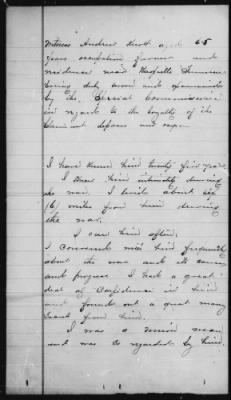 Witness Andrew Scott aged 65
years occupation farmer and
residence near Tennessee
being duly sworn and examined
by the Special Commissioner
in regard to the loyalty of the
Claimant deposes and says
I have known him twenty five years
I knew him intimately during
the war. I lived about six
(6) miles from him during
the war.
I saw him often.
I conversed with him frequently
about the war and its causes
and progress I had a great
deal of Confidence in him
and found out a great many
from him.
I was a Union man
and was so regarded by him.